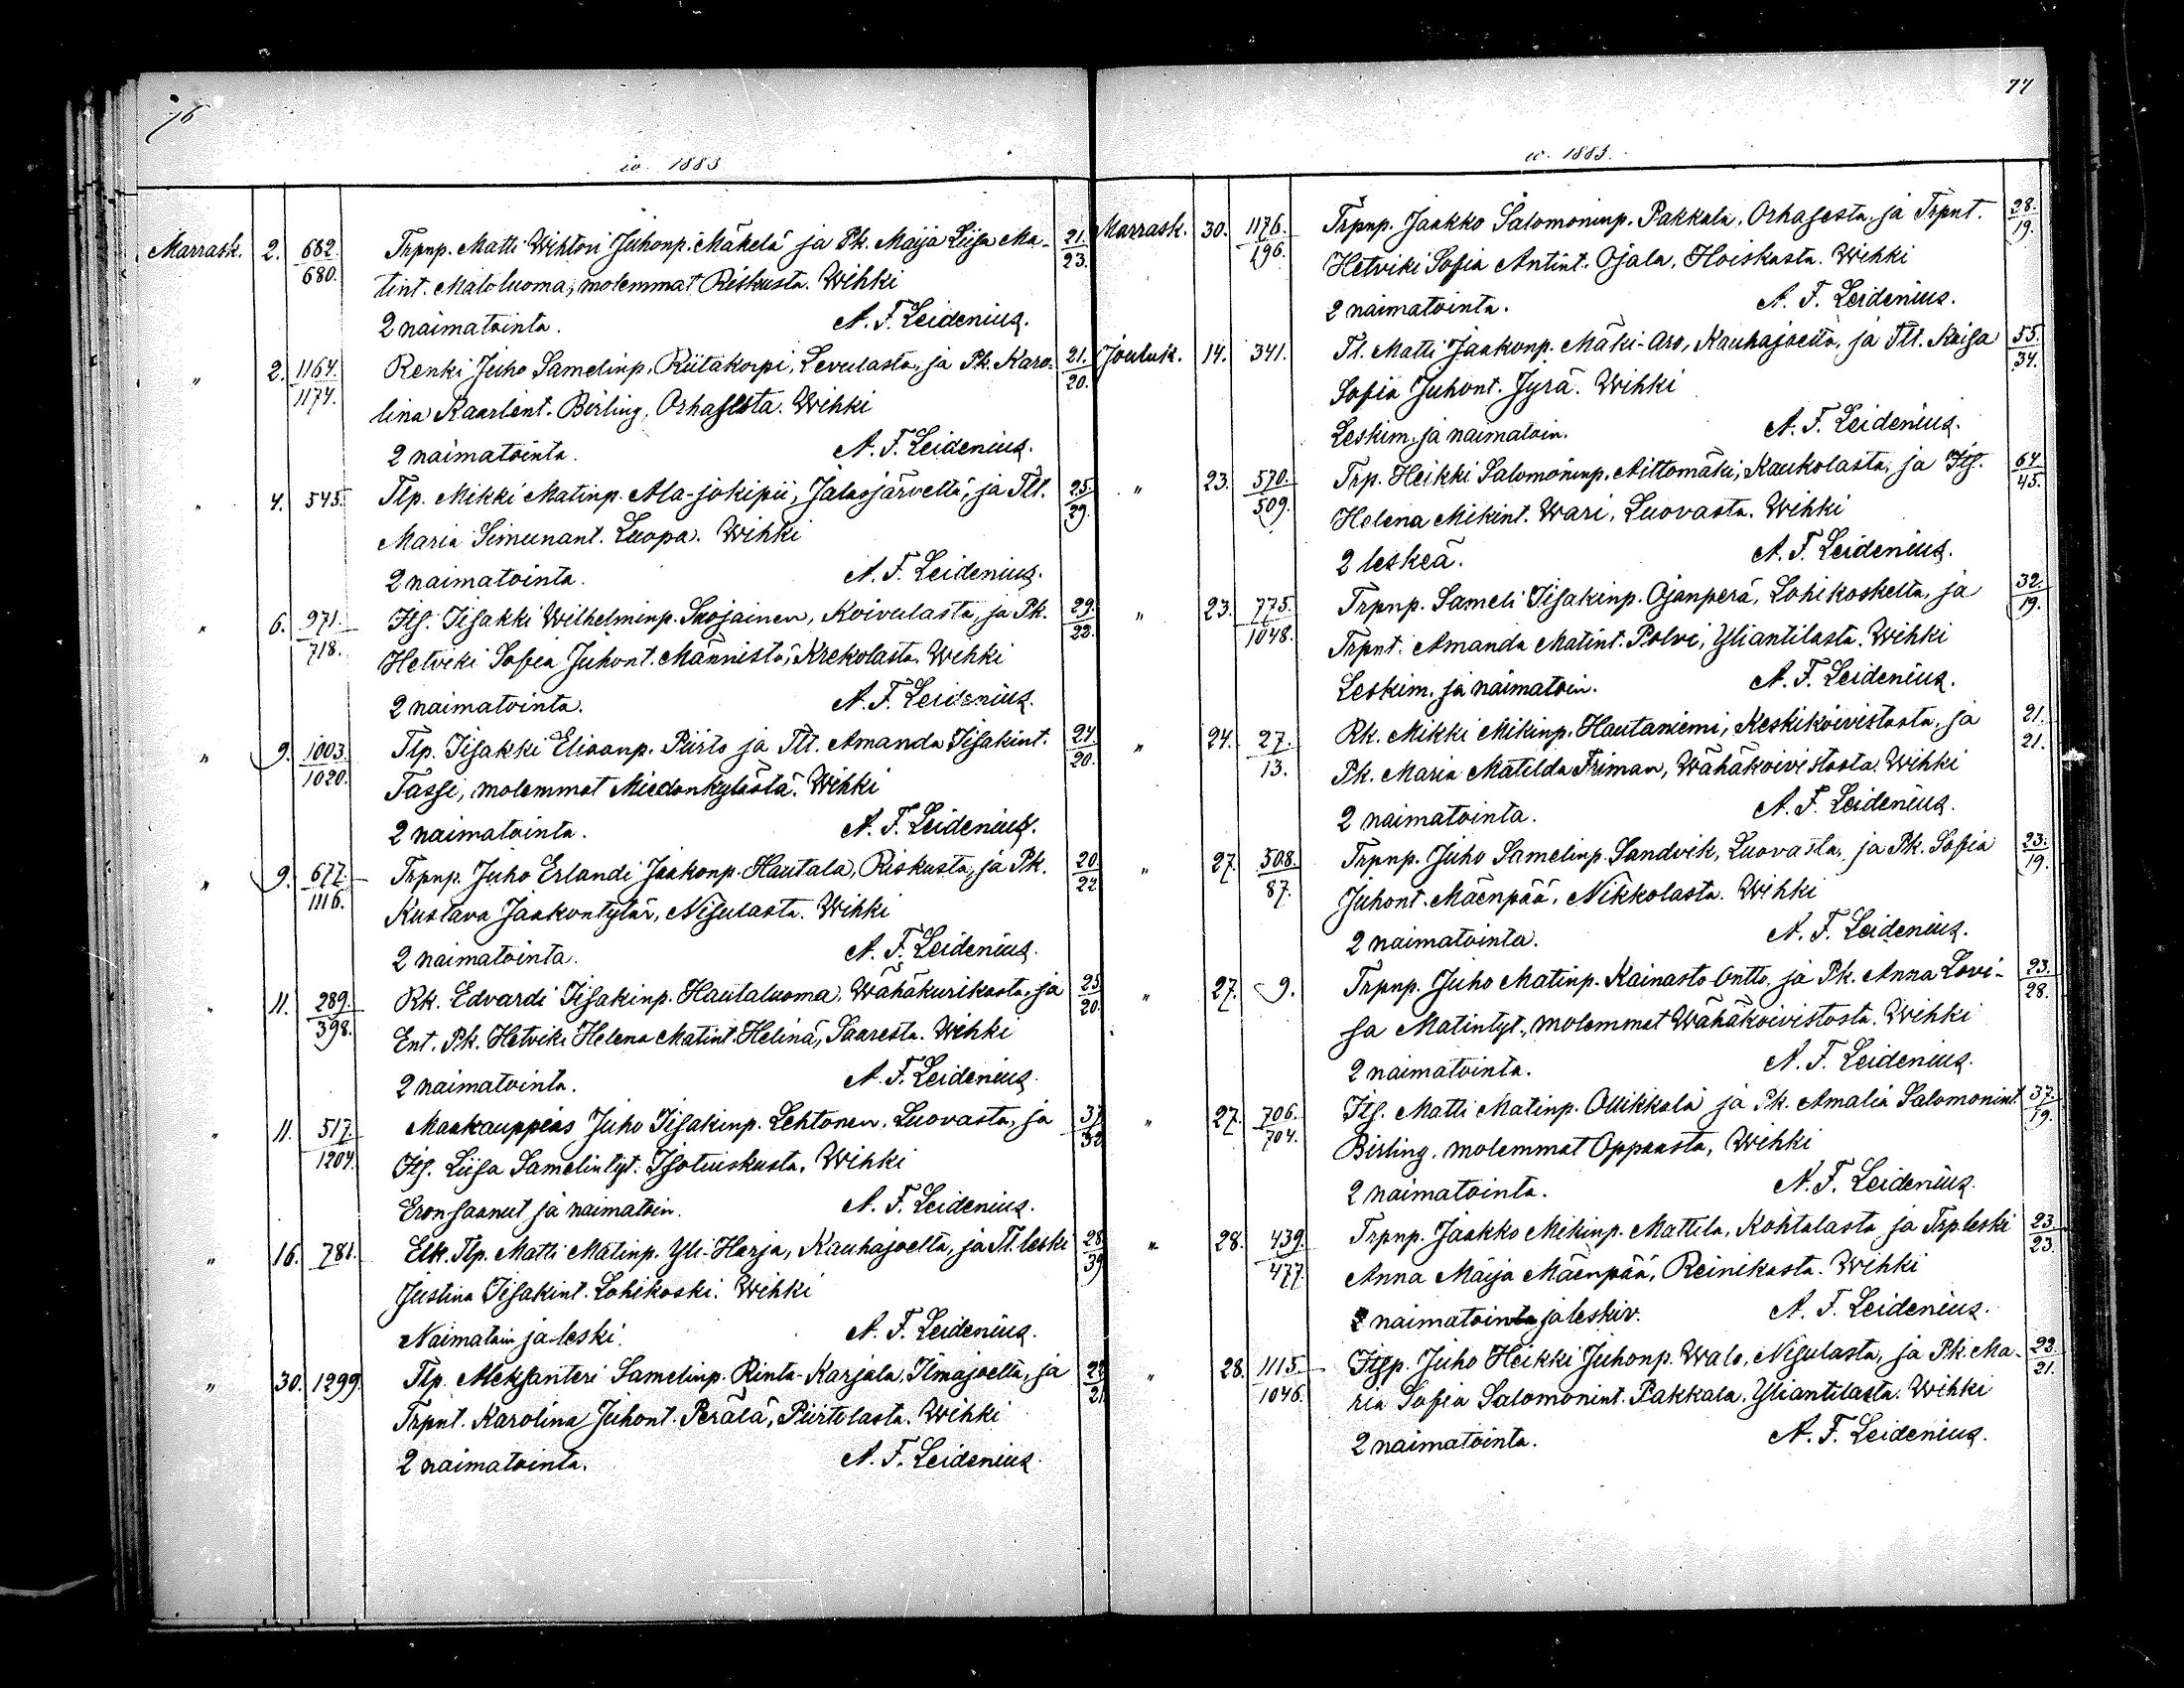 76
io. 1883
Marrask. 2. 682./680. Trpnp. Matti Wihtori Juhonp. Mäkelä ja Pk. Maija Liisa Ma- 21./23.
tint. Mato luoma, molemmat Riskusta. Wihki
2 naimatointa. A. F. Leidenius.
" 2. 1164./1174. Renki Juho Samelinp. Riitakorpi, Levulasta, ja Pk. Karo- 21./20.
lina Kaarlent. Birling, Orhasesta. Wihki
2 naimatointa. A. F. Leidenius.
" 4. 545. Tlp. Mikki Matinp. Ala-jokipii, Jalasjärveltä, ja Tlt. 25./29.
Maria Simeunant. Luopa. Wihki
2 naimatointa. A. F. Leidenius.
" 6. 971./718. Its. Iisakki Wilhelminp. Suojainen, Koivulasta, ja Pk. 29./22.
Hetviki Sofia Juhont. Männistö, Krekolasta. Wihki
2 naimatointa. A. F. Leidenius.
" 9. 1003./1020. Tlp. Iisakki Eliaanp. Piirto ja Tlt. Amanda Iisakint. 24./20.
Tassi, molemmat Miedonkylästä. Wihki
2 naimatointa. A. F. Leidenius.
" 9. 677./1116. Trpnp. Juho Erlandi Jaakonp. Hautala, Riskusta, ja Pk. 20./22
Kustava Jaakontytär, Nisulasta. Wihki
2 naimatointa. A. F. Leidenius.
" 11. 289./398. Rk. Edvardi Iisakinp. Hautaluoma, Wähäkurikasta, ja 23/20.
Ent. Pk. Hetviki Helena Matint. Helinä, Saaresta. Wihki
2 naimatointa. A. F. Leidenius.
" 11. 517./1204. Maakauppias Juho Iisakinp. Lehtonen, Luovasta, ja 37/32
Its. Liisa Samelintyt. Isotuiskusta. Wihki
Eronsaanut ja naimatoin. A. F. Leidenius.
" 16. 781. Elk. Tlp. Matti Matinp. Yli-Harja, Kauhajoelta, ja Tl. leski 28/39
Justina Iisakint. Lohikoski. Wihki
Naimatoin ja leski. A. F. Leidenius.
" 30. 1299. Tlp. Aleksanteri Samelinp. Rinta-Karjala, Ilmajoelta, ja 22/21
Trpnt. Karolina Juhont. Perälä, Piirtolasta. Wihki
2 naimatointa. A. F. Leidenius.
77
io. 1883.
Marrask. 30. 1176./196. Trpnp. Jaakko Salomoninp. Pakkala, Orhasesta, ja Trpnt. 28./19.
Hetviki Sofia Antint. Ojala, Hoiskasta. Wihki
2 naimatointa. A. F. Leidenius.
Jouluk. 14. 341. Tl. Matti Jaakonp. Mäki-Aro, Kauhajoelta, ja Tlt. Kaisa 55./34.
Sofia Juhont. Jyrä. Wihki
Leskim. ja naimatoin. A. F. Leidenius.
" 23. 570./509. Trp. Heikki Salomoninp. Niittomäki, Kaukolasta, ja Its. 64/45.
Helena Mikint. Wari, Luovasta. Wihki
2 leskeä. A. F. Leidenius.
" 23. 775./1048. Trpnp. Sameli Iisakinp. Ojanperä, Lohikoskelta, ja 32./19.
Trpnt. Amanda Matint. Polvi, Yliantilasta. Wihki
Leskim. ja naimatoin. A. F. Leidenius.
" 24. 27./13. Rk. Mikki Mikinp. Hautaniemi, Keskikoivistosta, ja 21./21.
Pk. Maria Matilda Friman, Wähäkoivistosta. Wihki
2 naimatointa. A. F. Leidenius.
" 27. 508./87. Trpnp. Juho Samelinp. Sandvik, Luovasta, ja Pk. Sofia 23./19.
Juhont. Mäenpää, Nikkolasta. Wihki
2 naimatointa. A. F. Leidenius.
" 27. 9. Trpnp. Juho Matinp. Kainasto Ontto, ja Pk. Anna Lovi- 23./28.
sa Matintyt., molemmat Wähäkoivistosta. Wihki
2 naimatointa. A. F. Leidenius.
" 27. 706./704. Its. Matti Matinp. Ollikkala ja Pk. Amalia Salomonint. 37./19.
Birling, molemmat Oppaasta, Wihki
2 naimatointa. A. F. Leidenius.
" 28. 439./477. Trpnp. Jaakko Mikinp. Mattila, Kohtalasta ja Trp. leski 23./23.
Anna Maija Mäenpää, Reinikasta. Wihki
naimatoin ja leskiv. A. F. Leidenius.
" 28. 1115./1046. Itsp. Juho Heikki Juhonp. Walo, Nisulasta, ja Pk. Ma- 22./21.
ria Sofia Salomonint. Pakkala, Yliantilasta. Wihki
2 naimatointa. A. F. Leidenius.